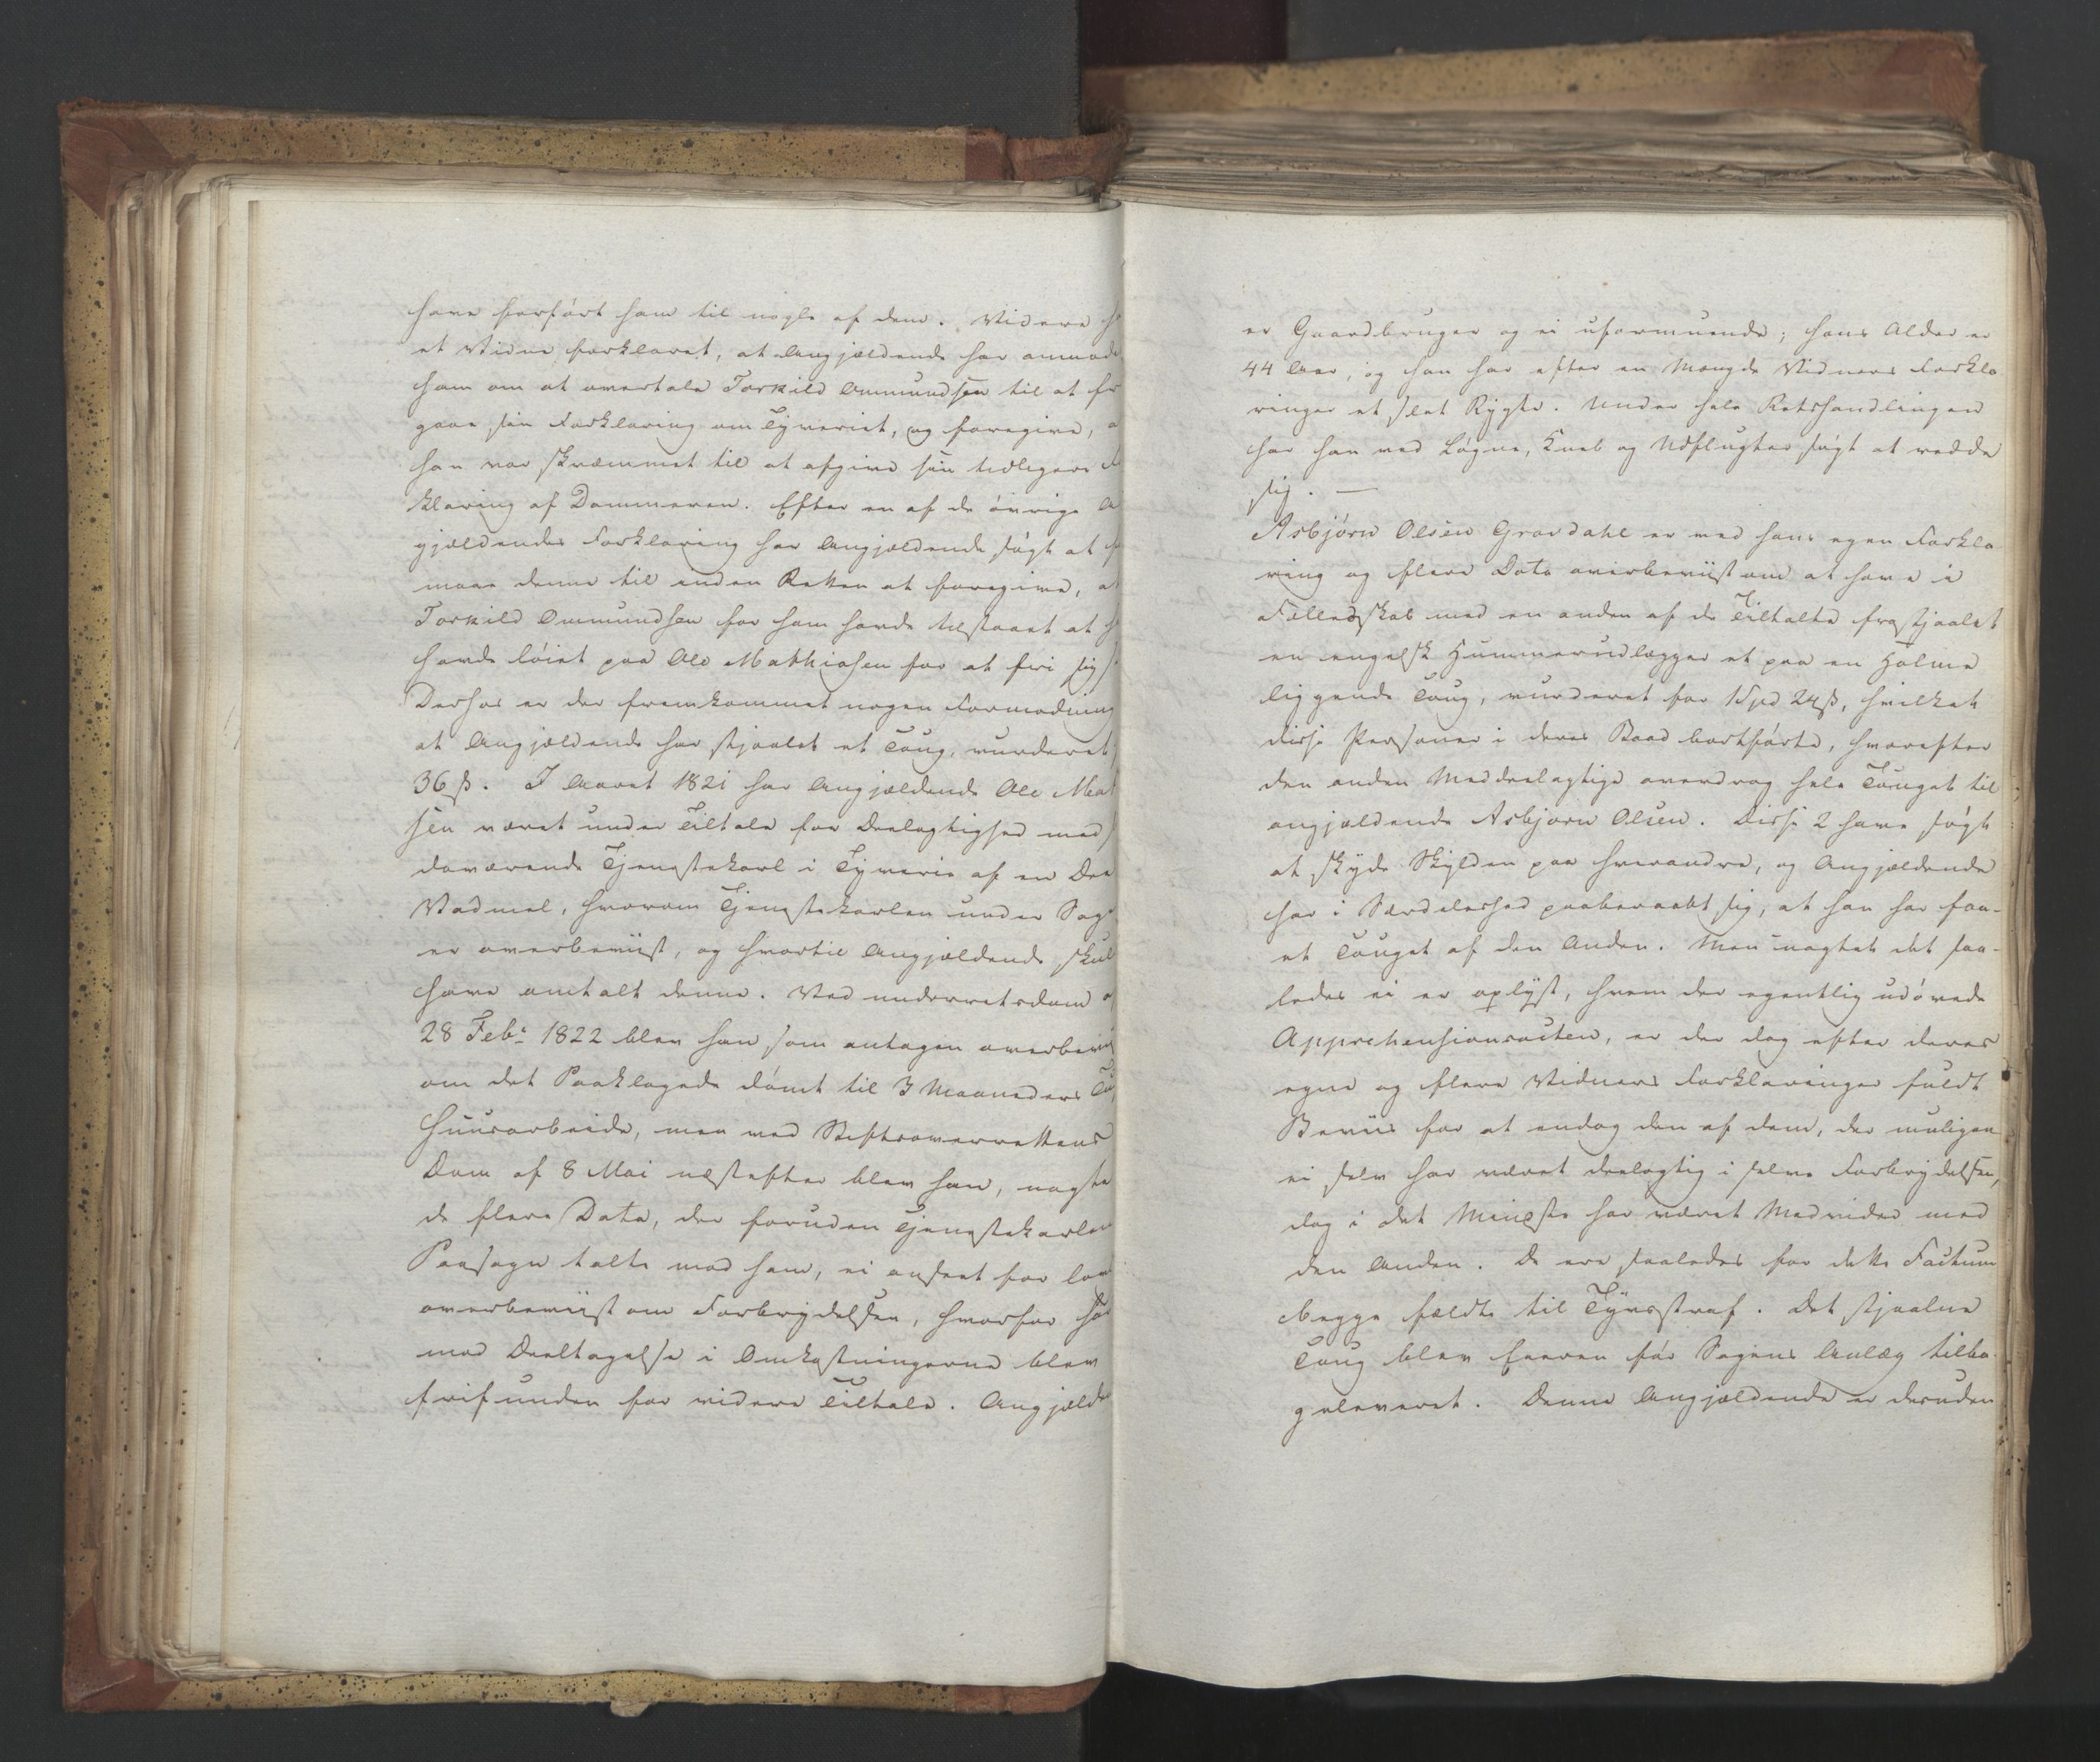 have forført ham til nogle af dem. Videre h
et Vidne forklaret, at Angjældende har anmode
ham om at overtale Torkild Ommundsen til at fra
gaae sin Forklaring om Tyveriet, og foregive, a
han var skræmmet til at afgive sin tidligere F
klaring af Dommeren. Efter en af de øvrige A
gjældendes Forklaring har Angjældende søgt at f
maae denne til inden Retten at foregive, at
Torkild Ommundsen for ham havde tilstaaet at h
havde løiet paa Ole Mathiasen for at fri sig s
Derhos er der fremkommet nogen Formodning
at Angjældende har stjaalet et Toug, vurderet
36 ß. I Aaret 1821 har Angjældende Ole Mat
sen været under Tiltale for Deelagtighed med s
daværende Tjenestekarl i Tyverie af en Dee
Vadmel, hvorom Tjenestekarlen under Sage
er overbeviist, og hvortil Angjældende skul
have omtalt denne. Ved underretsdom a
28 Febr 1822 blev han som antagen overbevii
om det Paaklagede dømt til 3 Maaneders Tu
Huusarbeide, men ved Stiftsoverrettens
Dom af 8 Mai næstefter blev han, uagte
de flere Data, der foruden Tjenestekarlen
Paasagn talte mod ham, ei anseet for lov
overbeviist om Forbrydelsen, hvorfor ha
mod Deeltagelse i Omkostningerne blev
frifunden for videre Tiltale. Angjælde
er Gaardbruger og ei uformuende; hans Alder er
44 Aar, og han har efter en Mængde Vidners Forkla
ringer et slet Rygte. Under hele Retshandlingen
har han ved Løgne, Kneb og Udflugter søgt at redde
sig. —
Asbjørn Olsen Grovdahl er ved hans egen Forkla
ring og flere Data overbeviist om at have i
Fælledsskab med en anden af de Tiltalte frastjaalet
en engelsk Hummerudlægger et paa en Holme
liggende Toug, vurderet for 1 Spd 24 ß, hvilket
disse Personer i deres Baad bortførte, hvorefter
den anden Meddeelagtige overdrog hele Touget til
angjældende Asbjørn Olsen. Disse 2 have søgt
at skyde Skylden paa hverandre, og Angjældende
har i Særdeleshed paaberaabt sig, at han har faa-
et Touget af den Anden. Men uagtet det saa-
ledes ei er oplyst, hvem der egentlig udøvede
Apprehensionsacten, er der dog efter deres
egne og flere Vidners Forklaringer fuldt
Beviis for at endog den af dem, der muligen
ei selv har været deelagtig i selve Forbrydelsen,
dog i det Mindste har været Medvider med
den Anden. De ere saaledes for dette Factum
begge fældte til Tyvsstraf. Det stjaalne
Toug blev Eieren før Sagens Anlæg tilba-
geleveret. Denne Angjældende er desuden